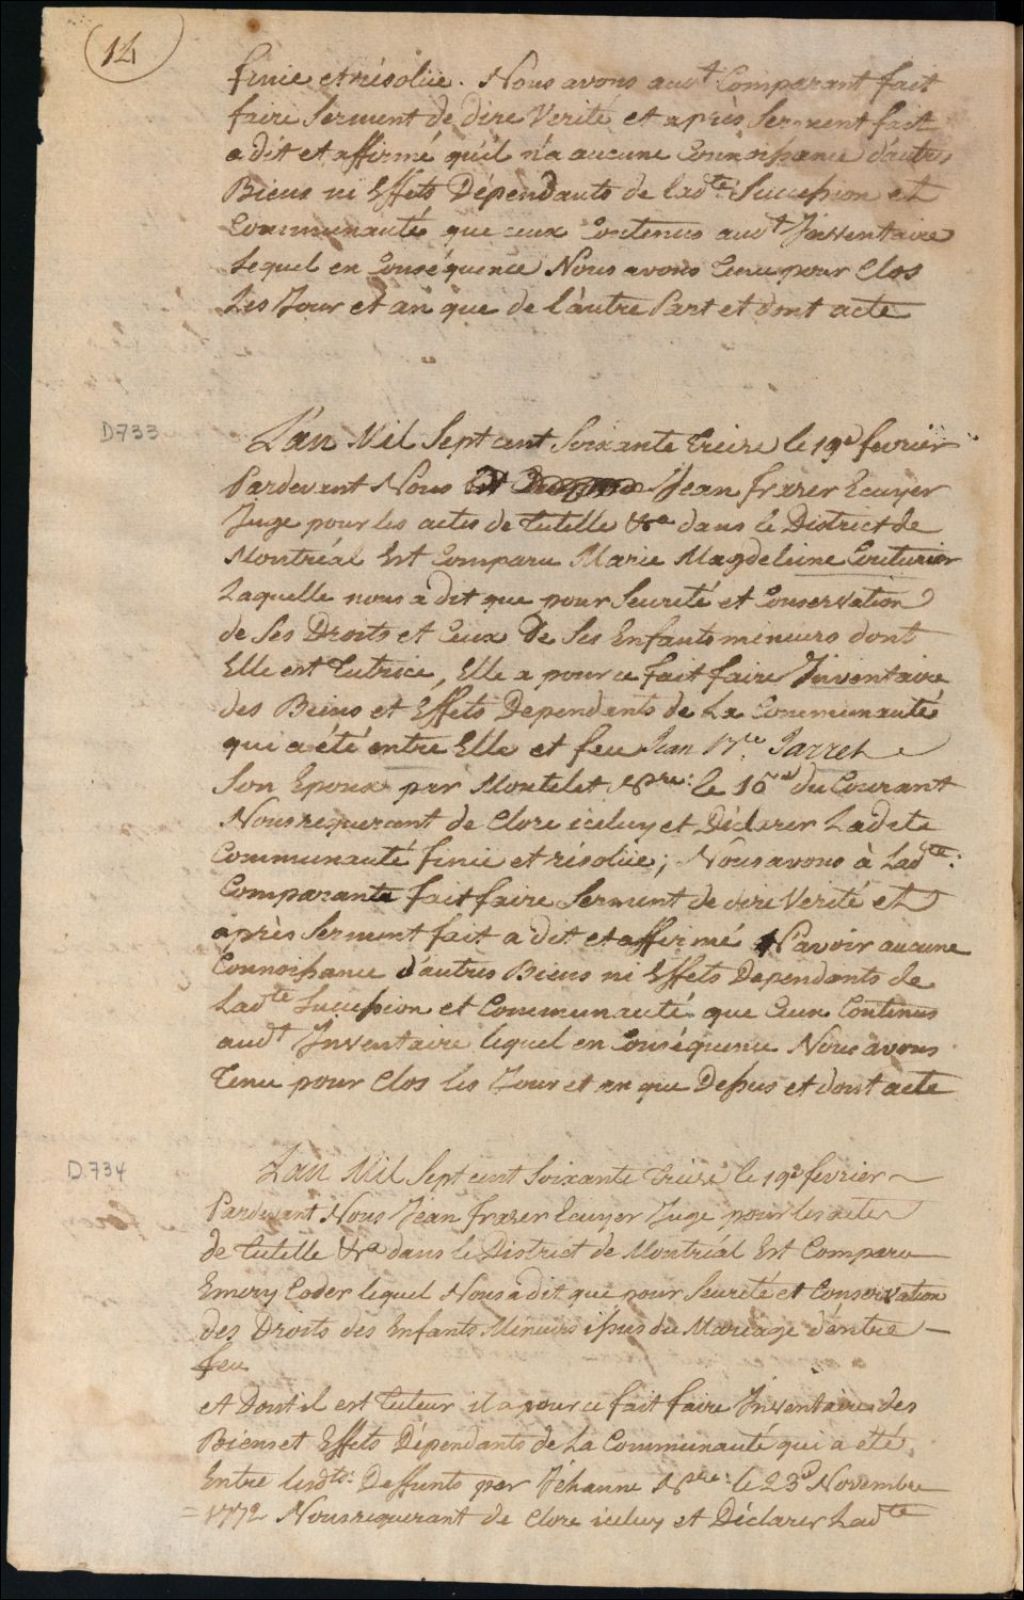 14
finie et résoliie. Nous avons aud.t Comparant fait
faire Serment de dire Verité et après Serment fait
a dit et affirmé qu'il n'a aucune Connoissance d'autres
Biens ni Effets Dépendants de lad.te Succession et
Communauté que ceux Contenus aud.t Inventaire
Lequel en Conséquence Nous avons Tenu pour Clos
Les Jour et an que de l'autre Part et dont acte
D.733
L'an Mil Sept cent Soixante Treize le 19.e fevrier
Pardevant Nous Jean Frazer Ecuyer
Juge pour les actes de Tutelle &ca dans le District de
Montréal Est Comparu Marie Magdeleine Couturier
Laquelle nous a dit que pour Seureté et Conservation
de Ses Droits et Ceux de Ses Enfants mineurs dont
Elle est Tutrice, Elle a pour ce fait faire Inventaire
des Beins et Effets Dependants de La Communauté
qui a été entre Elle et feu Jean B.te Jarret
Son Epoux par Montelet N.re: le 16.e du Courant
Nous requerant de Clore iceluy et Déclarer Ladete
Communauté finie et résoliie; Nous avons à Lad.te:
Comparante fait faire Serment de dire Verité et
après Serment fait a dit et affirmé N'avoir aucune
Connoissance d'autres Biens ni Effets Dependants de
Lad.te Succession et Communauté que Ceux Contenus
aud.t Inventaire lequel en Conséquence Nous avons
Tenu pour Clos les Jour et an que Dessus et dont acte
D.734
L'an Mil Sept cent Soixante Treize le 19.e fevrier
Pardevant Nous Jean Frazer Ecuyer Juge pour les actes
de Tutelle &ca dans le District de Montréal Est Comparu
Emery Coder lequel Nous a dit que pour Seureté et Conservation
des Droits des Enfants Mineurs issus du Mariage d'entre
feu
et Dont il est Tuteur il a pour ce fait faire Inventaire des
Biens et Effets Dépendants de La Communauté qui a été
Entre lesd.ts: Deffunts par Jéhanne N.re: le 23.e Novembre
1772 Nous requerant de Clore iceluy et Déclarer Lad.te